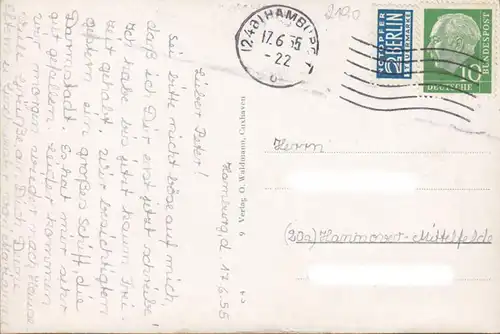 2120
(24a) HAMBURG 1
17.6.55
-22
NOTOPFER
2 BERLIN
STEUERMARKE
DEUTSCHE
BUNDESPOST
10
Hamburg, d. 17.6.55
Lieber Peter!
Sei bitte nicht böse auf mich,
daß ich Dir erst jetzt schreibe,
ich habe bis jetzt kaum Frei-
zeit gehabt. Wir besichtigten
gestern ein großes Schiff, die
Darmstadt. Es hat mir sehr
gut gefallen. Leider kommen
wir morgen wieder nach Hause
Viele Grüße an Dich Deine
Eltern
6 Verlag O. Waldmann, Cuxhaven
Herrn
(20a) Hannover-Mittelfelde